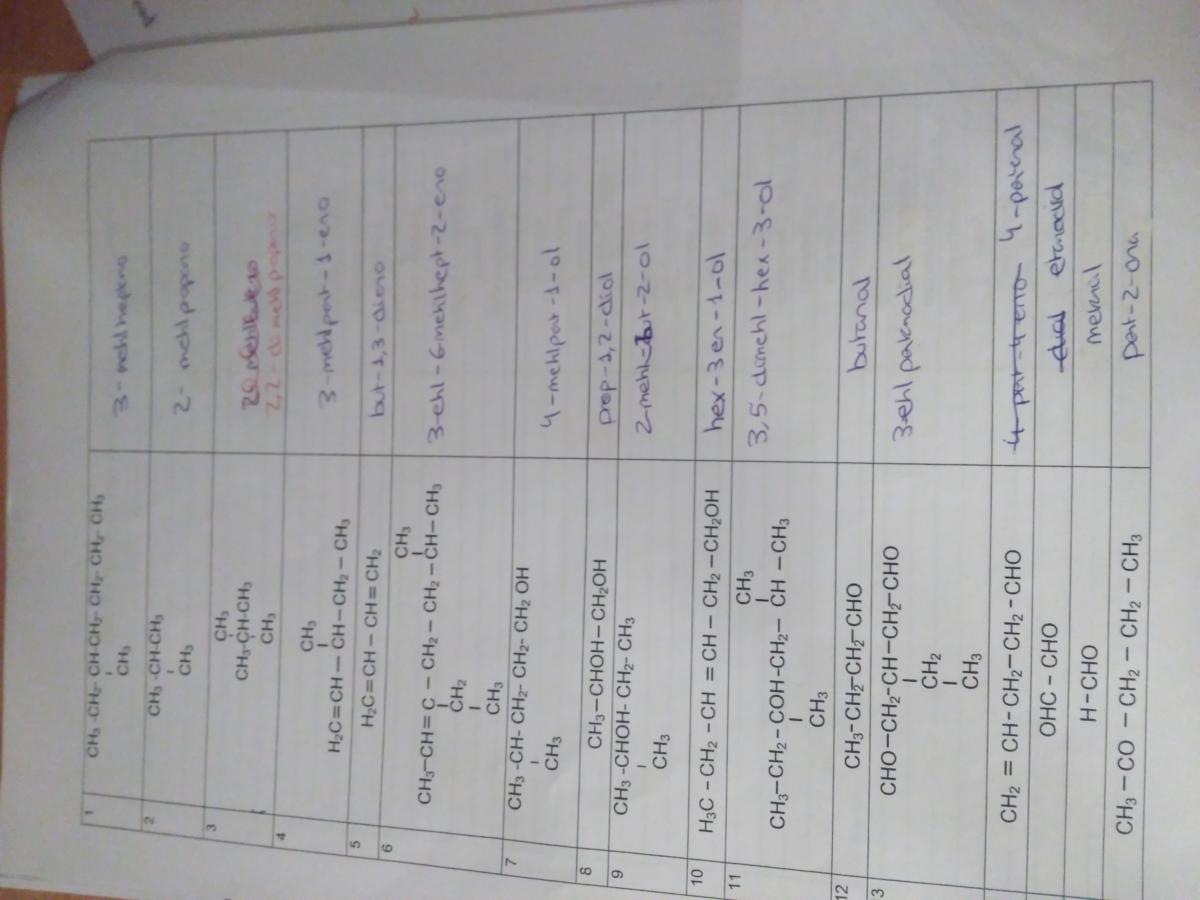 1
CH₃ -CH₂- CH-CH₂- CH₂- CH₂- CH₃
CH₃
3- metilheptano
2
CH₃ -CH-CH₃
CH₃
2- metilpropano
3
CH₃
CH₃-CH-CH₃
CH₃
2,2- di metil propano
4
CH₃
H₂C=CH — CH—CH₂ — CH₃
3-metilpent-1-eno
5
H₂C=CH — CH=CH₂
but-1,3-dieno
6
CH₃
CH₃—CH=C — CH₂ — CH₂ —CH—CH₃
CH₂
CH₃
3-etil-6-metilhept-2-eno
7
CH₃ -CH- CH₂- CH₂- CH₂ OH
CH₃
4-metilpent-1-ol
8
CH₃—CHOH—CH₂OH
prop-1,2-diol
9
CH₃ -CHOH- CH₂- CH₃
CH₃
2-metil-but-2-ol
10
H₃C - CH₂ -CH =CH— CH₂ —CH₂OH
hex-3en-1-ol
11
CH₃
CH₃—CH₂- COH-CH₂— CH —CH₃
CH₃
3,5-dimetil-hex-3-ol
12
CH₃-CH₂—CH₂—CHO
butanal
3
CHO—CH₂-CH—CH₂—CHO
CH₂
CH₃
3-etil pentanodial
CH₂ = CH- CH₂—CH₂ -CHO
4-pent-4-eno 4-pentenal
OHC - CHO
etanodial
H -CHO
metanal
CH₃ — CO — CH₂ — CH₂ — CH₃
pent-2-ona